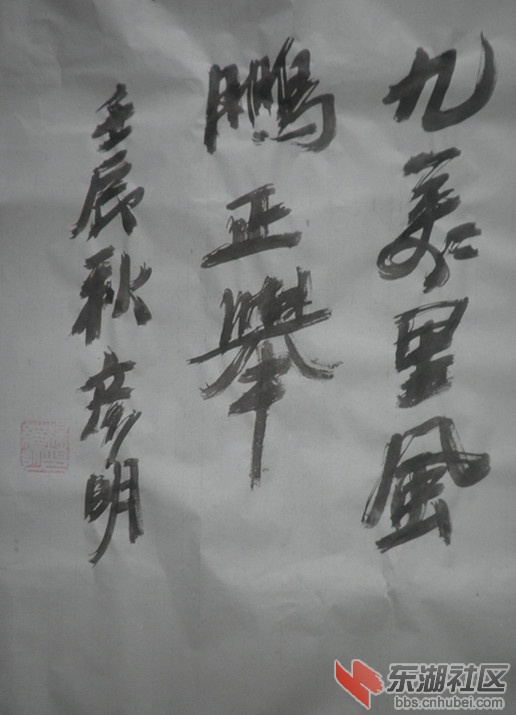 九萬里風
鵬正舉
壬辰秋彦明
东湖社区
bbs.cnhubei.com